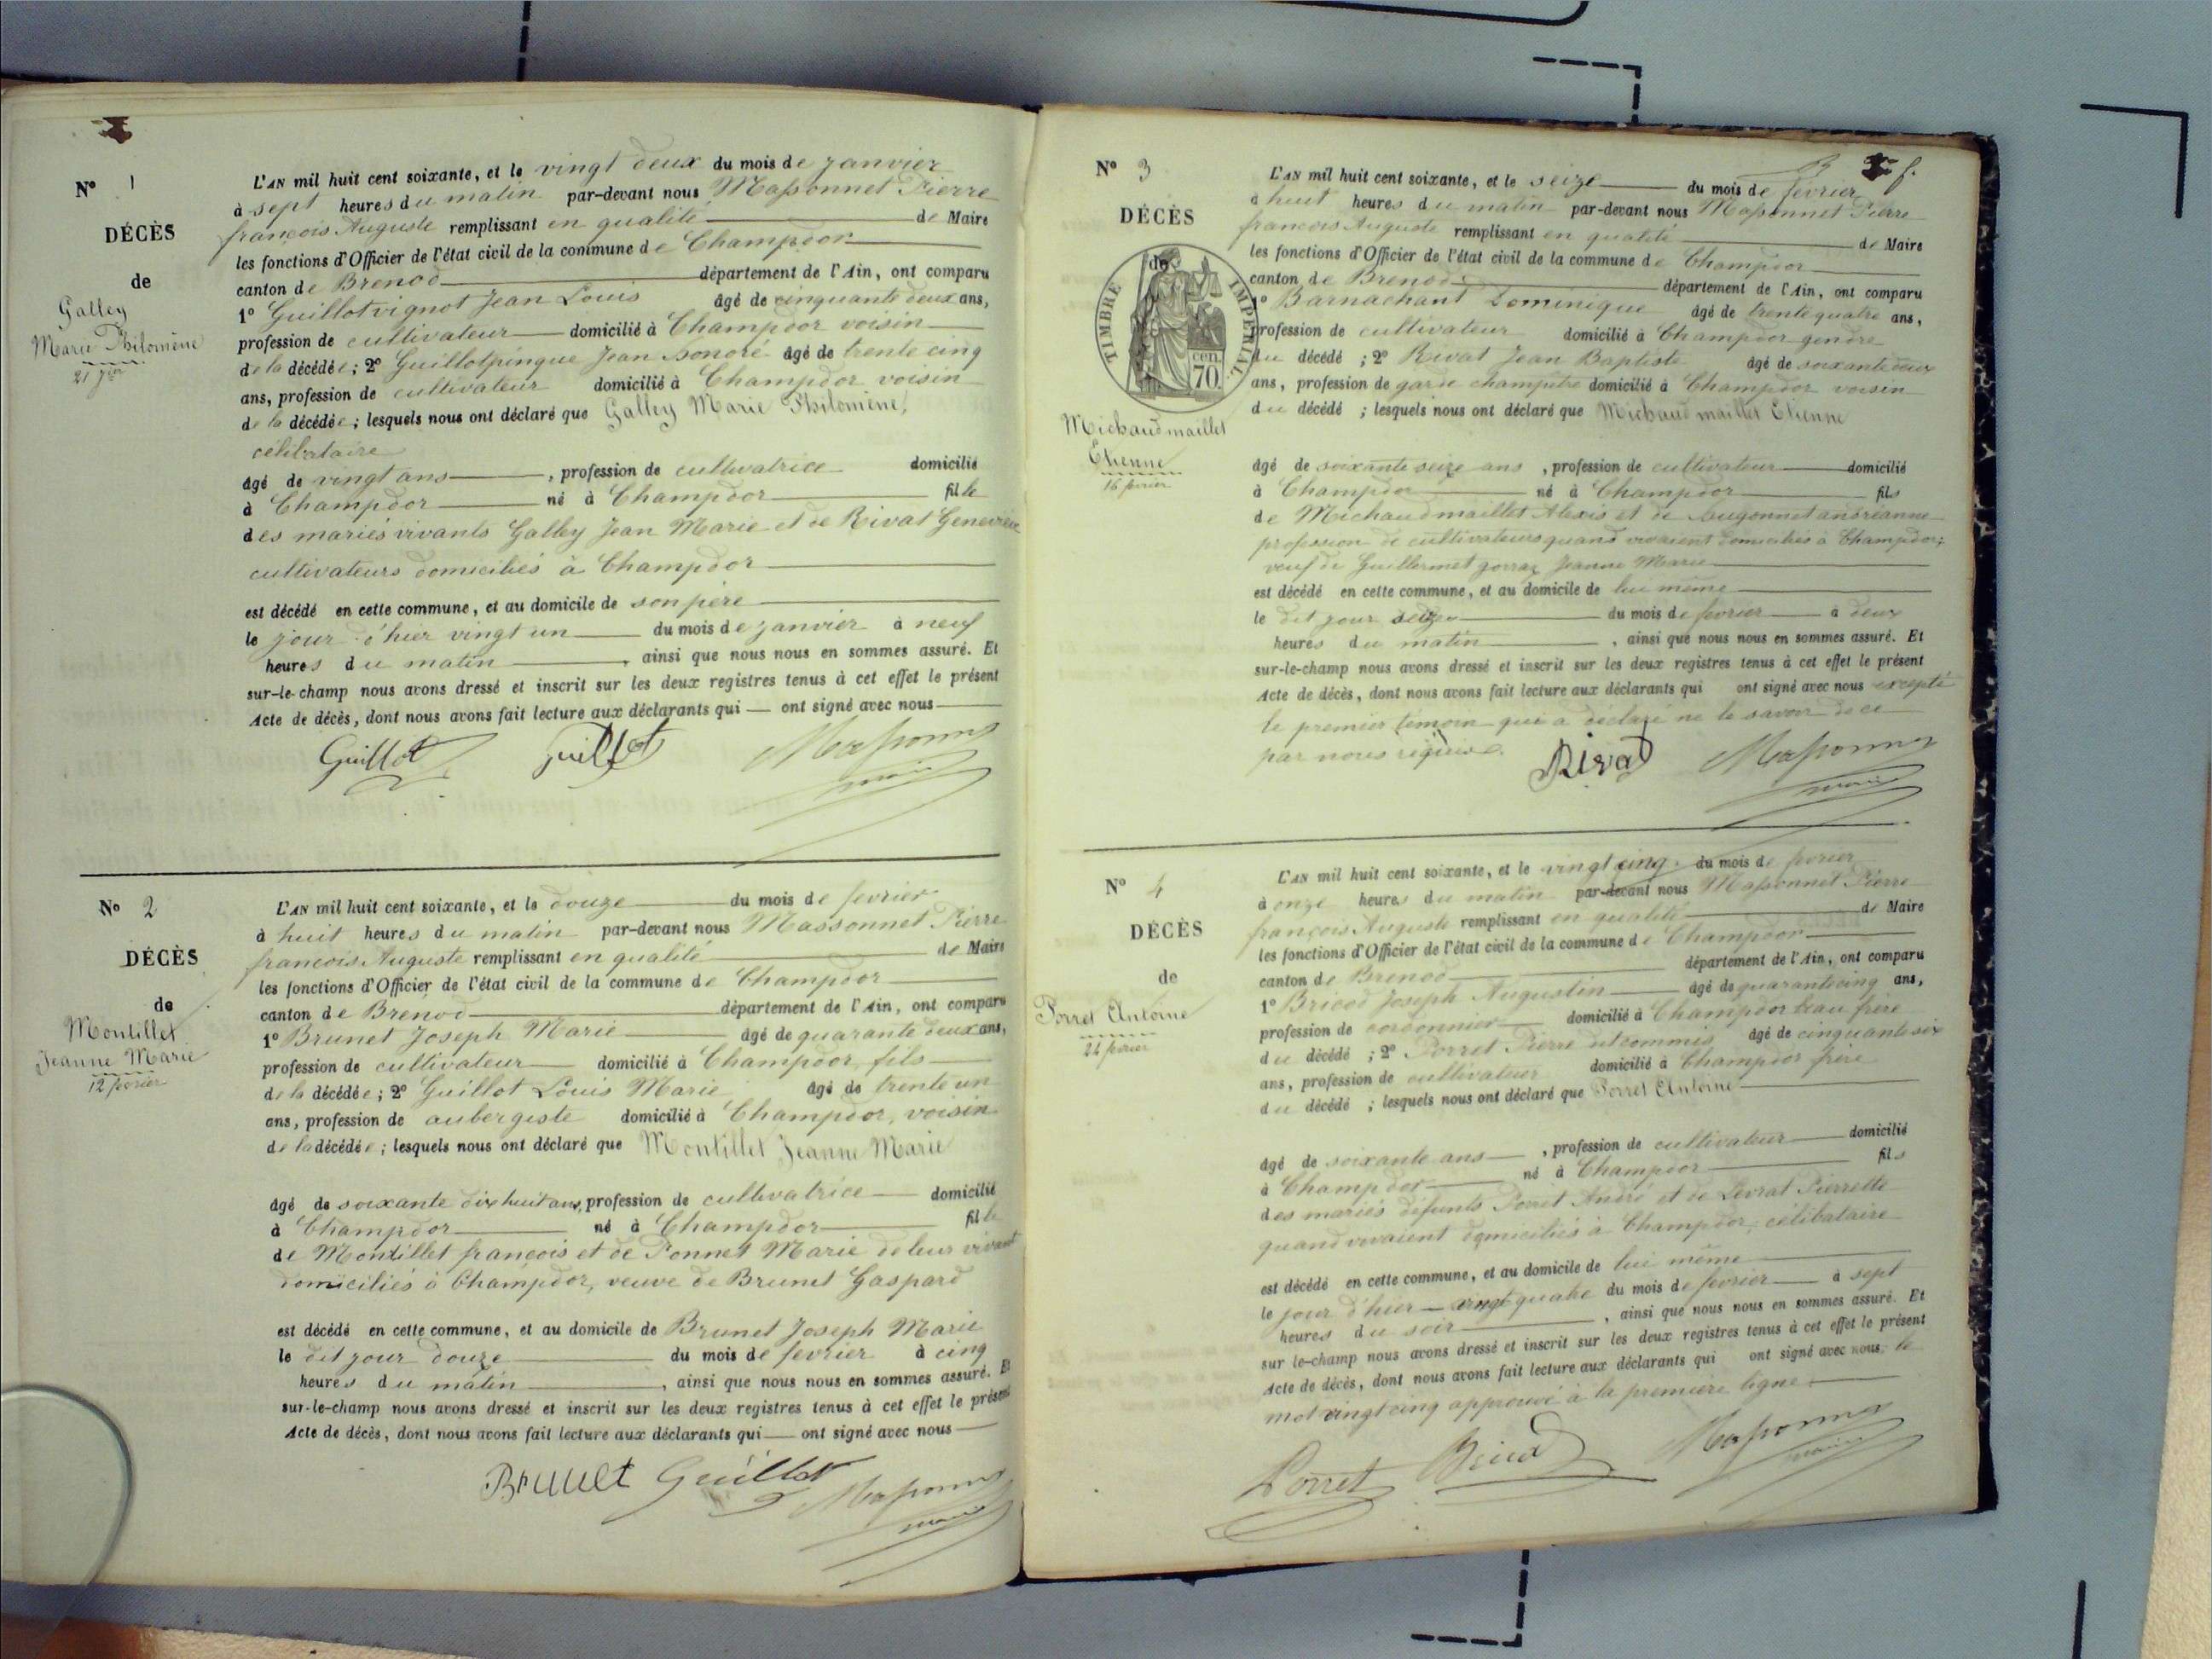 N° 1
DÉCÈS
de
Galley
Marie Philomène
21 Jer
L'AN mil huit cent soixante, et le vingt deux du mois de janvier
à sept heures du matin par-devant nous Massonnet Pierre
françois Auguste remplissant en qualité de Maire
les fonctions d'Officier de l'état civil de la commune de Champdor
canton de Brenod département de l'Ain, ont comparu
1° Guillotvignot Jean Louis âgé de cinquante deux ans,
profession de cultivateur domicilié à Champdor voisin
de la décédée; 2° Guillotpingue Jean honoré âgé de trente cinq
ans, profession de cultivateur domicilié à Champdor voisin
de la décédée; lesquels nous ont déclaré que Galley Marie Philomène,
célibataire
âgé de vingt ans, profession de cultivatrice domicilié
à Champdor né à Champdor fille
des mariés vivants Galley Jean Marie et de Rivat Genevieve
cultivateurs domiciliés à Champdor
est décédé en cette commune, et au domicile de son père
le jour d'hier vingt un du mois de janvier à neuf
heures du matin, ainsi que nous nous en sommes assuré. Et
sur-le-champ nous avons dressé et inscrit sur les deux registres tenus à cet effet le présent
Acte de décès, dont nous avons fait lecture aux déclarants qui ont signé avec nous
Guillot Guillot Massonnet
maire
N° 2
DÉCÈS
de
Montillet
Jeanne Marie
12 fevrier
L'AN mil huit cent soixante, et le douze du mois de fevrier
à huit heures du matin par-devant nous Massonnet Pierre
francois Auguste remplissant en qualité de Maire
les fonctions d'Officier de l'état civil de la commune de Champdor
canton de Brenod département de l'Ain, ont comparu
1° Brunet Joseph Marie âgé de quarante deux ans,
profession de cultivateur domicilié à Champdor, fils
de la décédée; 2° Guillot Louis Marie âgé de trente un
ans, profession de aubergiste domicilié à Champdor, voisin
de la décédée; lesquels nous ont déclaré que Montillet Jeanne Marie
âgé de soixante dix huit ans, profession de cultivatrice domicilié
à Champdor né à Champdor fille
de Montillet françois et de Ponnet Marie de leur vivant
domiciliés à Champdor, veuve de Brunet Gaspard
est décédé en cette commune, et au domicile de Brunet Joseph Marie
le dit jour douze du mois de fevrier à cinq
heures du matin, ainsi que nous nous en sommes assuré. Et
sur-le-champ nous avons dressé et inscrit sur les deux registres tenus à cet effet le présent
Acte de décès, dont nous avons fait lecture aux déclarants qui ont signé avec nous
Brunet Guillot Massonnet
maire
N° 3
DÉCÈS
de
TIMBRE IMPERIAL
cen.
70.
Michaudmaillet
Etienne
16 fevrier
L'AN mil huit cent soixante, et le seize du mois de fevrier
à huit heures du matin par-devant nous Massonnet Pierre
francois Auguste remplissant en qualité de Maire
les fonctions d'Officier de l'état civil de la commune de Champdor
canton de Brenod département de l'Ain, ont comparu
1° Barnachant Dominique âgé de trente quatre ans,
profession de cultivateur domicilié à Champdor gendre
du décédé; 2° Rivat Jean Baptiste âgé de soixante deux
ans, profession de garde champêtre domicilié à Champdor voisin
du décédé; lesquels nous ont déclaré que Michaud maillet Etienne
âgé de soixante seize ans, profession de cultivateur domicilié
à Champdor né à Champdor fils
de Michaudmaillet Alexis et de andréanne
profession de cultivateurs quand vivaient domiciliés à Champdor;
veuf de Guillermet gorraz Jeanne Marie
est décédé en cette commune, et au domicile de lui même
le dit jour seize du mois de fevrier à deux
heures du matin, ainsi que nous nous en sommes assuré. Et
sur-le-champ nous avons dressé et inscrit sur les deux registres tenus à cet effet le présent
Acte de décès, dont nous avons fait lecture aux déclarants qui ont signé avec nous excepté
le premier témoin qui a déclaré ne le savoir de ce
par nous requis.
Rivat Massonnet
maire
N° 4
DÉCÈS
de
Porret Antoine
24 fevrier
L'AN mil huit cent soixante, et le vingt cinq du mois de fevrier
à onze heures du matin par-devant nous Massonnet Pierre
françois Auguste remplissant en qualité de Maire
les fonctions d'Officier de l'état civil de la commune de Champdor
canton de Brenod département de l'Ain, ont comparu
1° Bricod Joseph Augustin âgé de quarante cinq ans,
profession de cordonnier domicilié à Champdor beau frère
du décédé; 2° Porret Pierre âgé de cinquante six
ans, profession de cultivateur domicilié à Champdor frère
du décédé; lesquels nous ont déclaré que Porret Antoine
âgé de soixante ans, profession de cultivateur domicilié
à Champdor né à Champdor fils
des mariés défunts Porret André et de Levrat Pierrette
quand vivaient domiciliés à Champdor, célibataire
est décédé en cette commune, et au domicile de lui même
le jour d'hier vingt quatre du mois de fevrier à sept
heures du soir, ainsi que nous nous en sommes assuré. Et
sur le-champ nous avons dressé et inscrit sur les deux registres tenus à cet effet le présent
Acte de décès, dont nous avons fait lecture aux déclarants qui ont signé avec nous. le
mot vingt cinq approuvé à la première ligne.
Porret Bricod Massonnet
maire